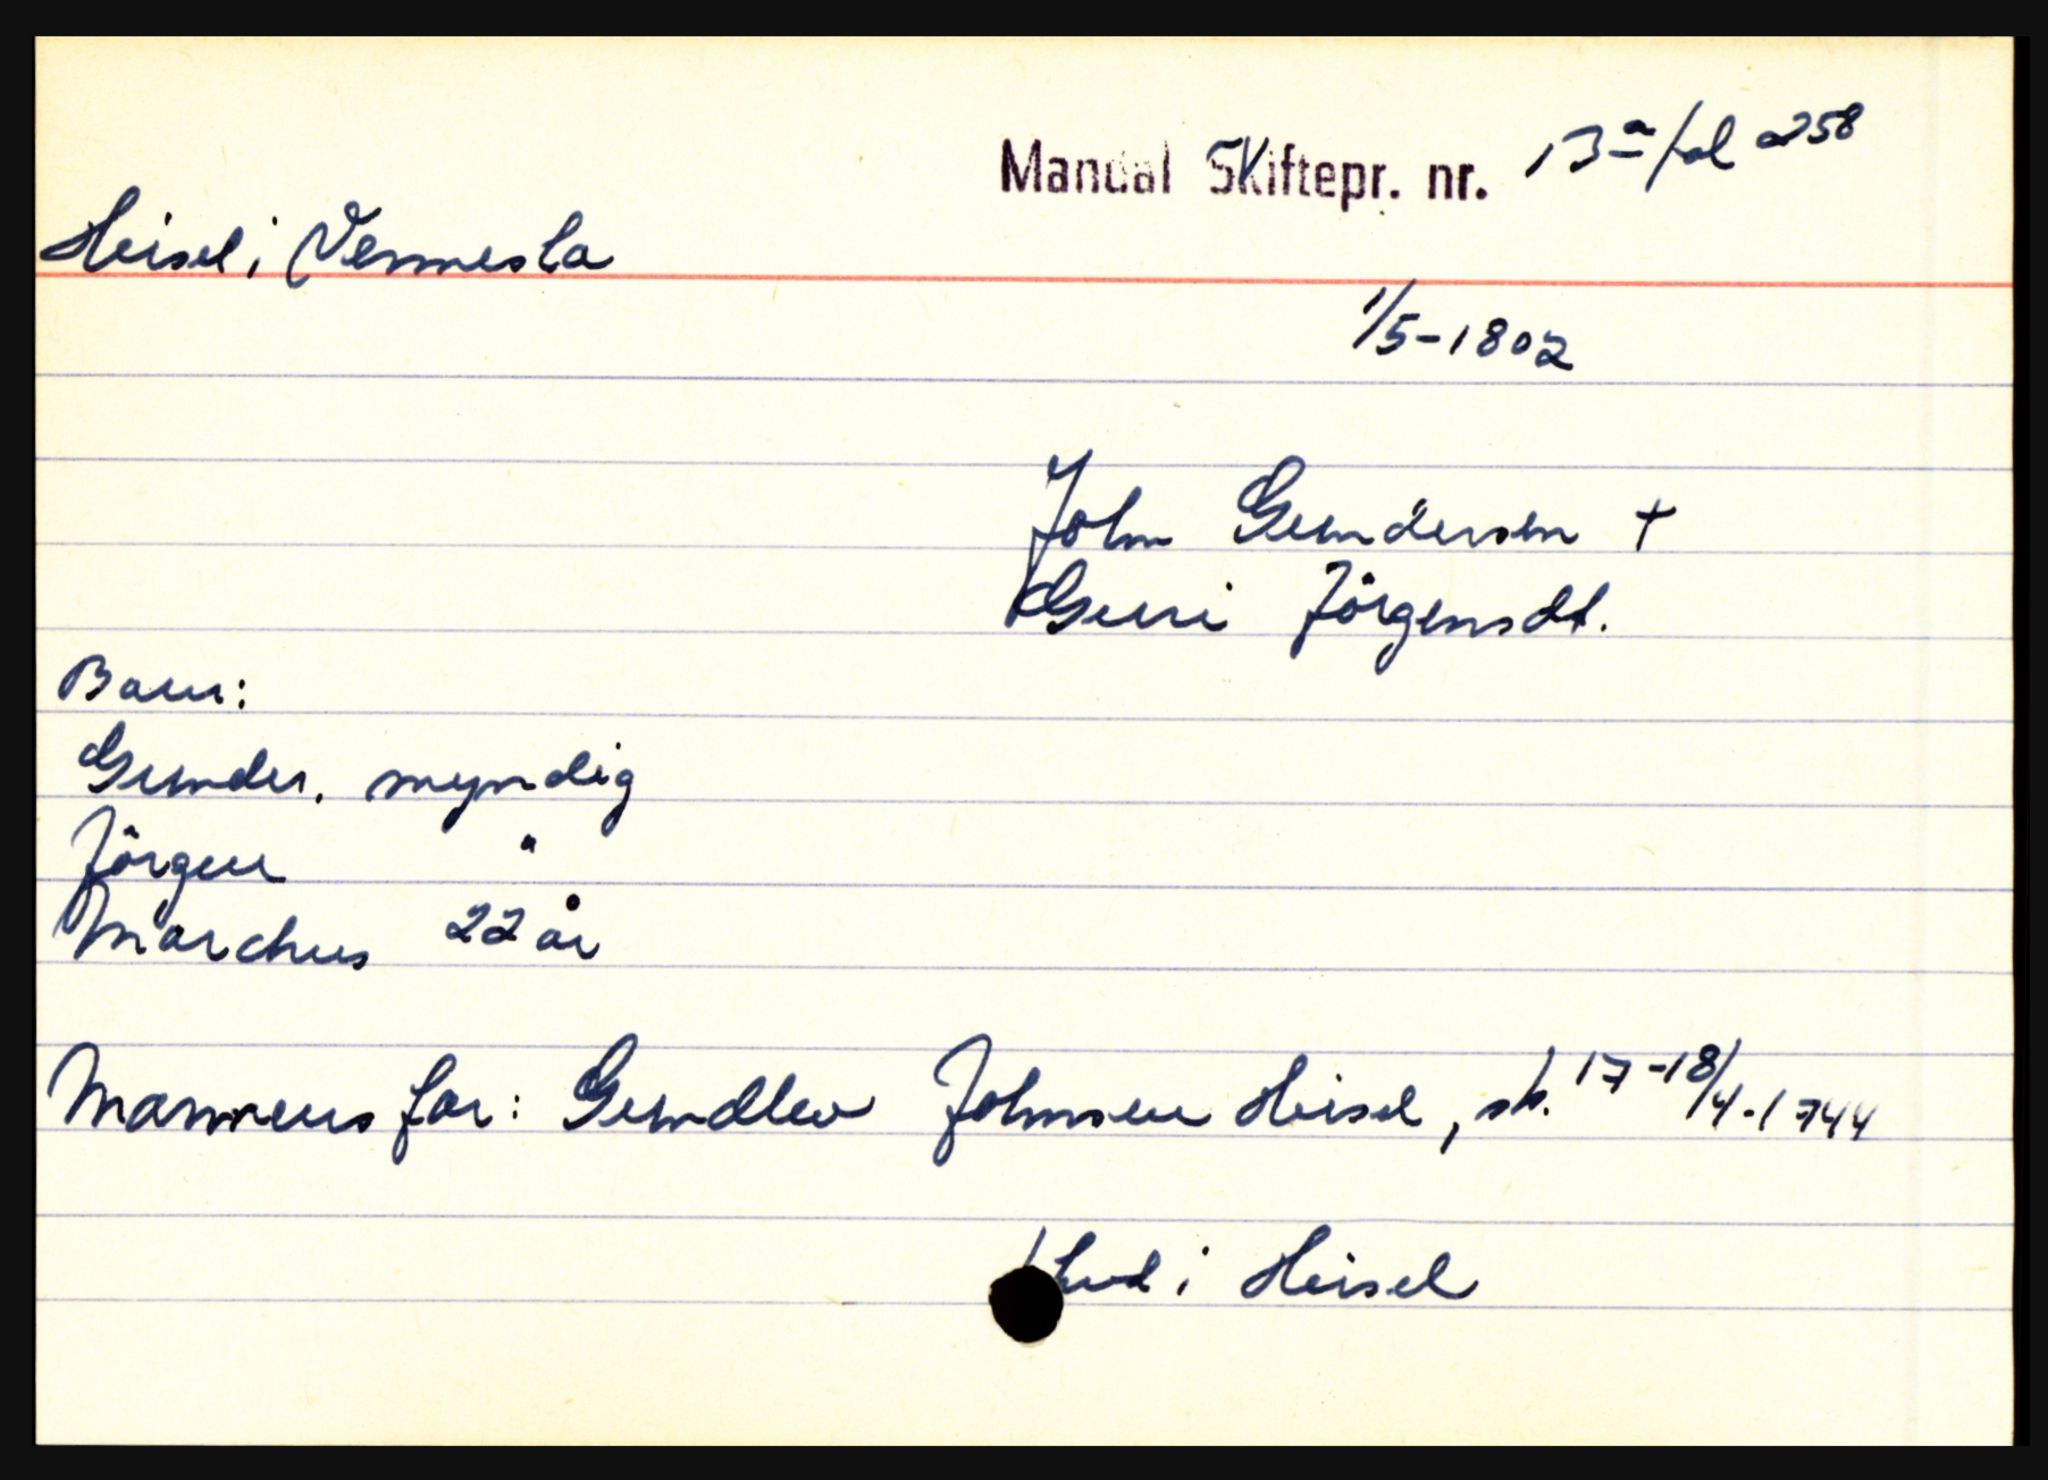 Mandal Skiftepr. nr. 13a fol 258
Heisel i Vennesla
1/5-1802
John Gundersen +
Guri Jörgensdt.
Barn:
Gunder. myndig
Jörgen "
Marchus 22 år
Mannens far: Gundlev Johnsen Heisel, sk. 17-18/4-1744
i Heisel